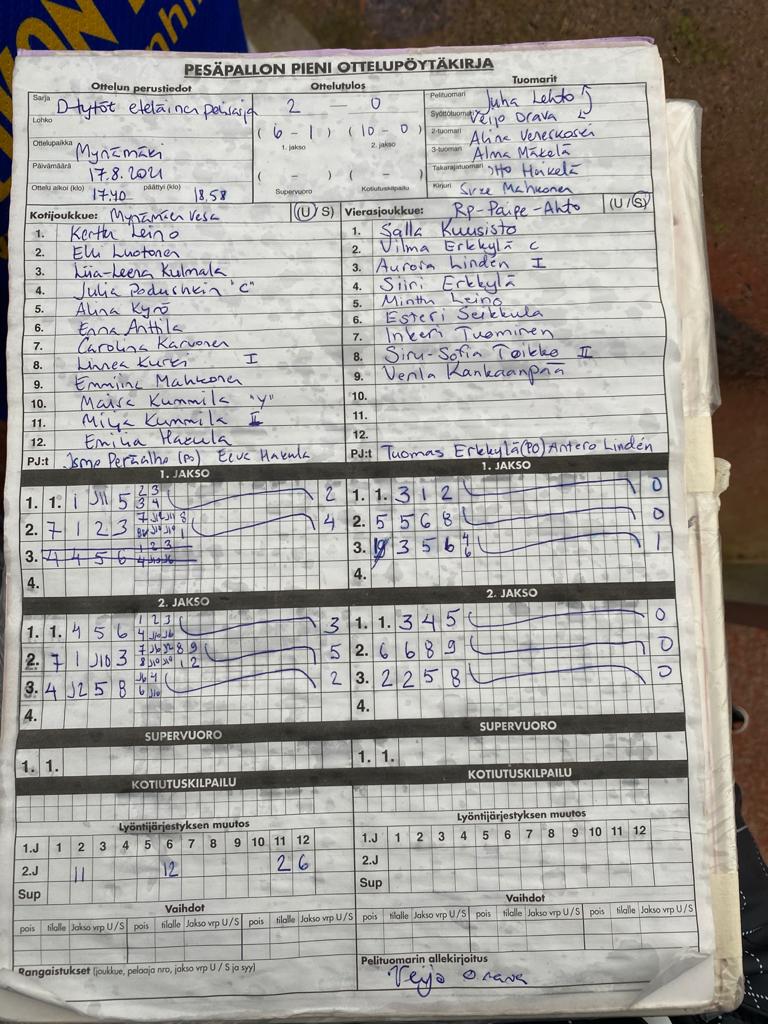 PESÄPALLON PIENI OTTELUPÖYTÄKIRJA
Ottelun perustiedot Ottelutulos Tuomarit
Sarja D-tytöt eteläinen
Lohko
2 — 0
Pelituomari Juha Lehto
Syöttötuomari Veijo Orava
2-tuomari Alina
3-tuomari Alma Mäkelä
Takarajatuomari Otto Hakela
Kirjuri Mahkonen
Ottelupaikka Mynämäki
(6 - 1) (10 - 0)
1. jakso 2. jakso
Päivämäärä 17.8.2021
( - ) ( - )
Supervuoro Kotiutuskilpailu
Ottelu alkoi (klo) 17.40 päättyi (klo) 18,58
Kotijoukkue: Mynämäen Vesa (U / S) Vierasjoukkue: Rp-Paipe-Ahto (U / S)
1. Kerttu Leino 1. Salla Kuusisto
2. Elli Luotonen 2. Vilma Erkkylä c
3. Liia-Leena Kulmala 3. Aurora Lindén I
4. Julia Podushkin "C" 4. Siiri Erkkylä
5. Alina Kyrö 5. Minttu Leino
6. Enna Anttila 6. Esteri Seikkula
7. Carolina Karvonen 7. Inkeri Tuominen
8. Linnea Kurki I 8. Siru-Sofia Toikko II
9. Emmiina Mahkonen 9. Venla Kankaanpää
10. Maisa Kummila "Y" 10.
11. Milja Kummila II 11.
12. Emilia Hakula 12.
PJ:t Jomo Peräalho (PJ) Eeva Hakula PJ:t Tuomas Erkkylä (PO) Antero Lindén
1. JAKSO 1. JAKSO
1. 1. 1 J11 5 2 3 3 4 2 1. 1. 3 1 2 0
2. 7 1 2 3 4 2. 5 5 6 8 0
3. 4 4 5 6 1 2 3 3. 3 5 6 4 6 1
4. 4.
2. JAKSO 2. JAKSO
1. 1. 4 5 6 1 2 3 3 1. 1. 3 4 5 0
2. 7 1 J10 3 5 2. 6 6 8 9 0
3. 4 J2 5 8 2 3. 2 2 5 8 0
4. 4.
SUPERVUORO SUPERVUORO
1. 1. 1. 1.
KOTIUTUSKILPAILU KOTIUTUSKILPAILU
Lyöntijärjestyksen muutos Lyöntijärjestyksen muutos
1.J 1 2 3 4 5 6 7 8 9 10 11 12 1.J 1 2 3 4 5 6 7 8 9 10 11 12
2.J 11 12 2 6 2.J
Sup Sup
Vaihdot Vaihdot
pois tilalle Jakso vrp U / S pois tilalle Jakso vrp U / S pois tilalle Jakso vrp U / S pois tilalle Jakso vrp U / S pois tilalle Jakso vrp U / S pois tilalle Jakso vrp U / S
Rangaistukset (joukkue, pelaaja nro, jakso vrp U / S ja syy) Pelituomarin allekirjoitus
Veijo Orava